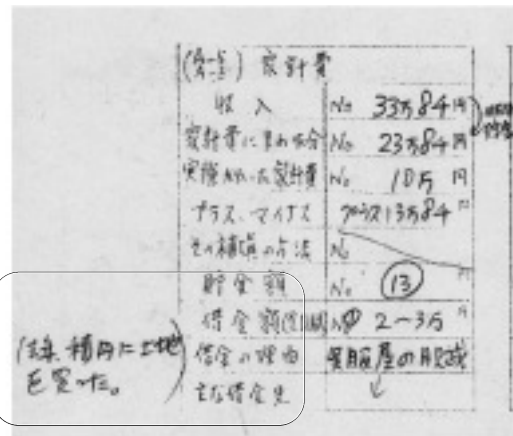 家計費
収入 No 33万84円
家計費にまわる分 No 23万84円
実際かかった家計費 No 10万円
プラス、マイナス プラス13万84円
その補填の方法 No
貯金額 No 13 円
借金額 2〜3万円
借金の理由 呉服屋の月賦
主な借金先
に土地
を買った。